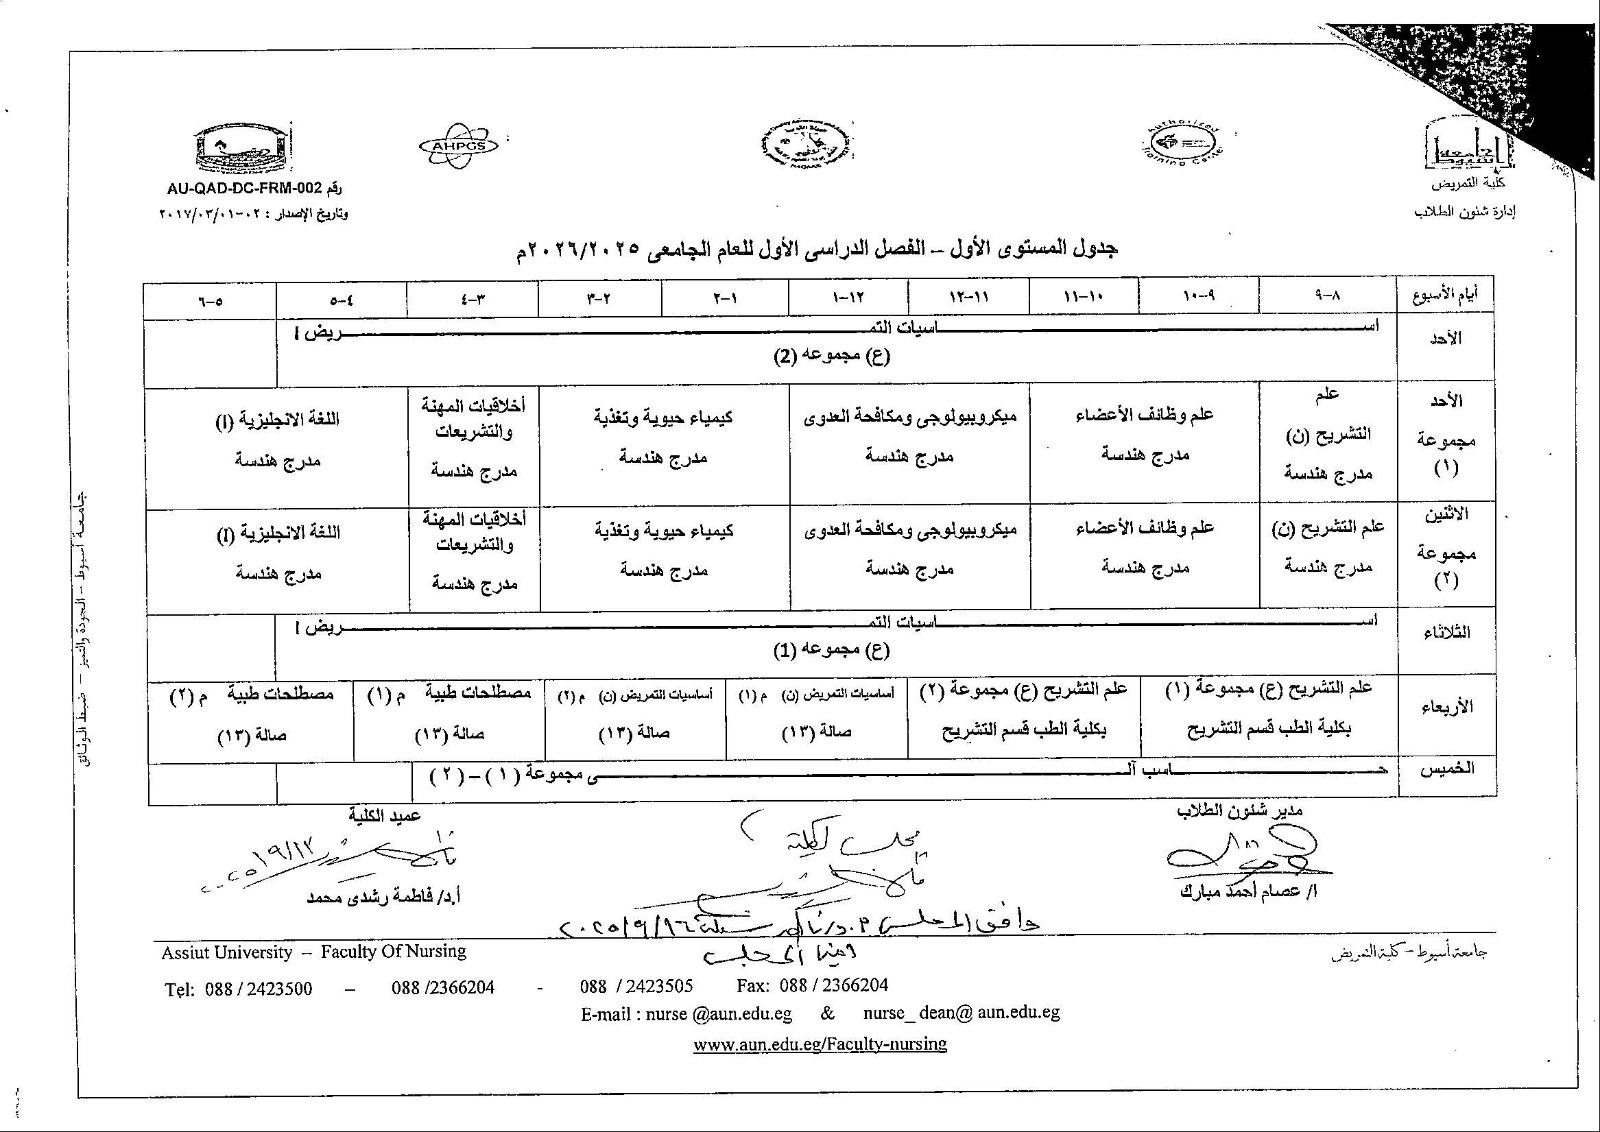 AHPGS
Authorized
Training Center
رقم AU-QAD-DC-FRM-002
وتاريخ الإصدار : ٠٢-٢٠١٧/٠٣/٠١
كلية التمريض
إدارة شئون الطلاب
جدول المستوى الأول – الفصل الدراسى الأول للعام الجامعى ٢٠٢٦/٢٠٢٥م
أيام الأسبوع ٨–٩ ٩–١٠ ١٠–١١ ١١–١٢ ١٢–١ ١–٢ ٢–٣ ٣–٤ ٤–٥ ٥–٦
الأحد اســـاسيات التمـــريض I
(ع) مجموعه (2)
الأحد
مجموعة
(١)
علم
التشريح (ن)
مدرج هندسة
علم وظائف الأعضاء
مدرج هندسة
ميكروبيولوجى ومكافحة العدوى
مدرج هندسة
كيمياء حيوية وتغذية
مدرج هندسة
أخلاقيات المهنة
والتشريعات
مدرج هندسة
اللغة الانجليزية (I)
مدرج هندسة
الاثنين
مجموعة
(٢)
علم التشريح (ن)
مدرج هندسة
علم وظائف الأعضاء
مدرج هندسة
ميكروبيولوجى ومكافحة العدوى
مدرج هندسة
كيمياء حيوية وتغذية
مدرج هندسة
أخلاقيات المهنة
والتشريعات
مدرج هندسة
اللغة الانجليزية (I)
مدرج هندسة
الثلاثاء اســـاسيات التمـــريض I
(ع) مجموعه (1)
الأربعاء
علم التشريح (ع) مجموعة (١)
بكلية الطب قسم التشريح
علم التشريح (ع) مجموعة (٢)
بكلية الطب قسم التشريح
أساسيات التمريض (ن) م (١)
صالة (١٣)
أساسيات التمريض (ن) م (٢)
صالة (١٣)
مصطلحات طبية م (١)
صالة (١٣)
مصطلحات طبية م (٢)
صالة (١٣)
الخميس حـــاسب آلـــى مجموعة (١)–(٢)
جامعة أسيوط – الجودة والتميز – ضبط الوثائق
مدير شئون الطلاب
ا/ عصام أحمد مبارك
مجلس الكلية
وافق المجلس
٢٠٢٥/٩/١٦
أمينا المجلس
عميد الكلية
أ.د/ فاطمة رشدى محمد
جامعة أسيوط – كلية التمريض
Assiut University – Faculty Of Nursing
Tel: 088 / 2423500 – 088 /2366204 - 088 / 2423505 Fax: 088 / 2366204
E-mail : nurse @aun.edu.eg & nurse_ dean@ aun.edu.eg
www.aun.edu.eg/Faculty-nursing